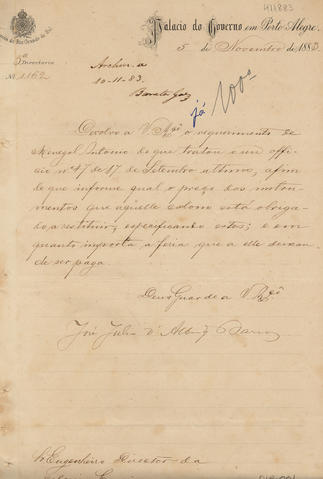 411883
Palacio do Governo em Porto Alegre,
5 de Novembro de 1883
Directoria
Nº 1162
Archive-se
10-11-83.
já 1000
Devolvo a V. Mcê o requerimento de
Menegol Antonio de que tratou em offi-
cio nº 47 de 17 de Setembro ultimo, afim
de que informe qual o preço dos instru-
mentos que aquelle colono está obriga-
do a restituir, especificando estes; e em
quanto importa a feria que a elle deixou
de ser paga.
Deus Guarde a V. Mcê
José Julio d'Albuqe Barros
Sr. Engenheiro Director da